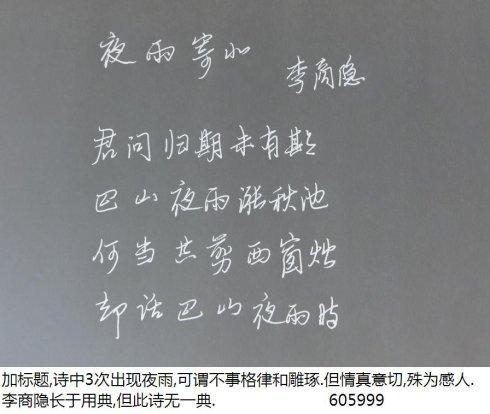 夜雨寄北
李商隐
君问归期未有期
巴山夜雨涨秋池
何当共剪西窗烛
却话巴山夜雨时
加标题,诗中3次出现夜雨,可谓不事格律和雕琢.但情真意切,殊为感人.
李商隐长于用典,但此诗无一典. 605999